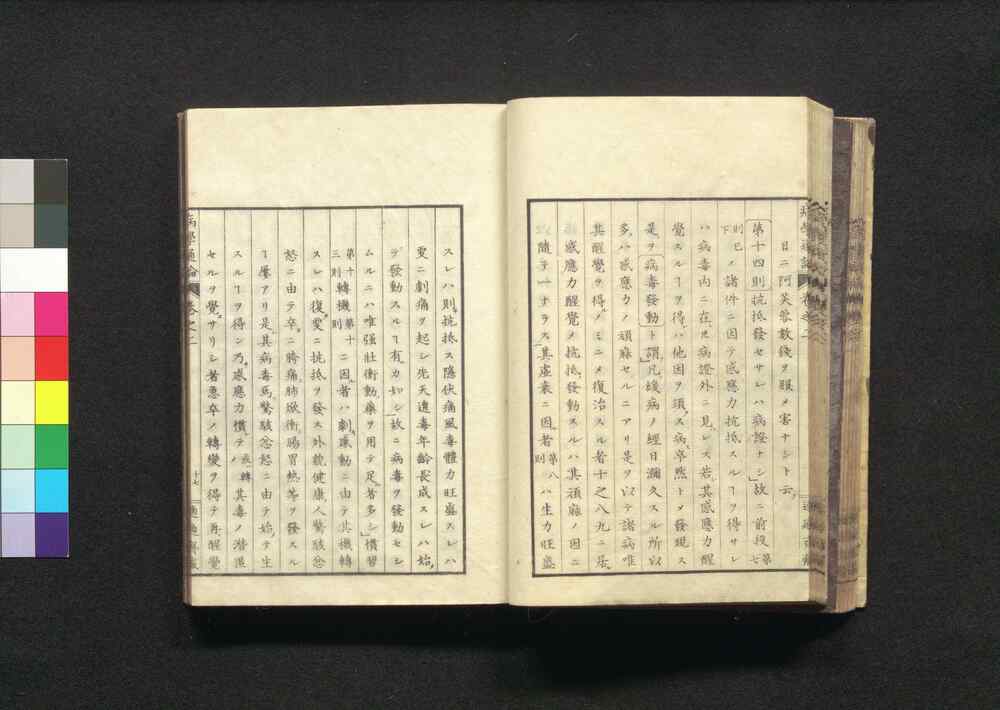 日ニ阿芙蓉数銭ヲ服メ害ナシト云
第十四則抗抵發セサレハ病證ナシ故ニ前段第七
則已下ノ諸件ニ因テ感應力抗抵スルヿヲ得サレ
ハ病毒内ニ在𪜈病證外ニ見レス若其感應力醒
覺スルヿヲ得ハ他因ヲ須スノ病卒然トメ發現ス
是ヲ病毒發動ト謂凡緩病ノ經日瀰久スル所以
多ハ感應力ノ頑麻セルニアリ是ヲ以テ諸病唯
其醒覺ヲ得ノミニメ復治スル者十之八九ニ居
感應力醒覺メ抗抵發動スルハ其頑麻ノ因ニ
隨テ一ナラス其虚衰ニ因者第八則ハ生力旺盛
スレハ則抗抵ス隱伏痛風毒體力旺盛スレハ
更ニ劇痛ヲ起シ先天遺毒年齢長成スレハ始
テ發動スルヿ有カ如シ故ニ病毒ヲ發動セシ
ムルニハ唯強壯衝動藥ヲ用テ足者多シ慣習
第十三則轉機第十則ニ因者ハ劇衝動ニ由テ其機轉
スレハ復更ニ抗抵ヲ發ス外貌健康人驚駭忿
怒ニ由テ卒ニ胯痛肺焮衝腸胃熱等ヲ發スル
ヿ屢アリ是其病毒焉驚駭忿怒ニ由テ始テ生
スルヿヲ得ンカ感應力慣テハ轉其毒ノ潜匿
セルヲ覺サリシ者悪卒ノ轉變ヲ得テ再醒覺
病學通論
巻之二
十七